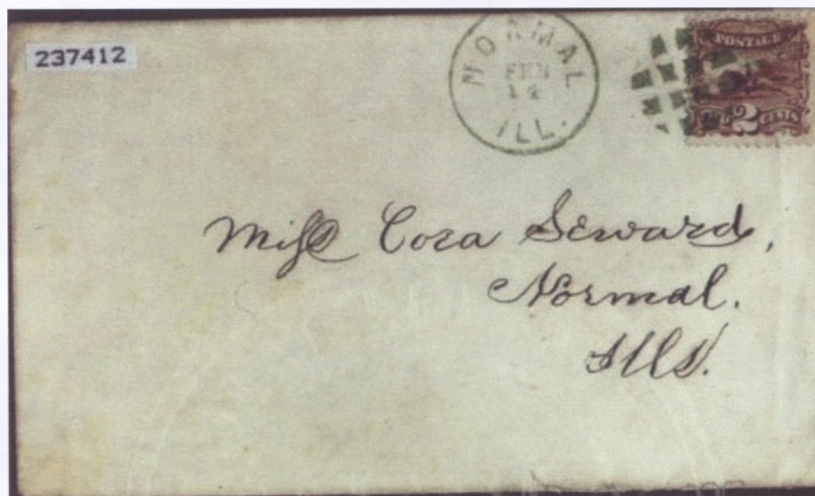 237412
NORMAL
FEB
14
ILL.
POSTAGE
2 CENTS
Miss Cora Seward,
Normal.
Ills.